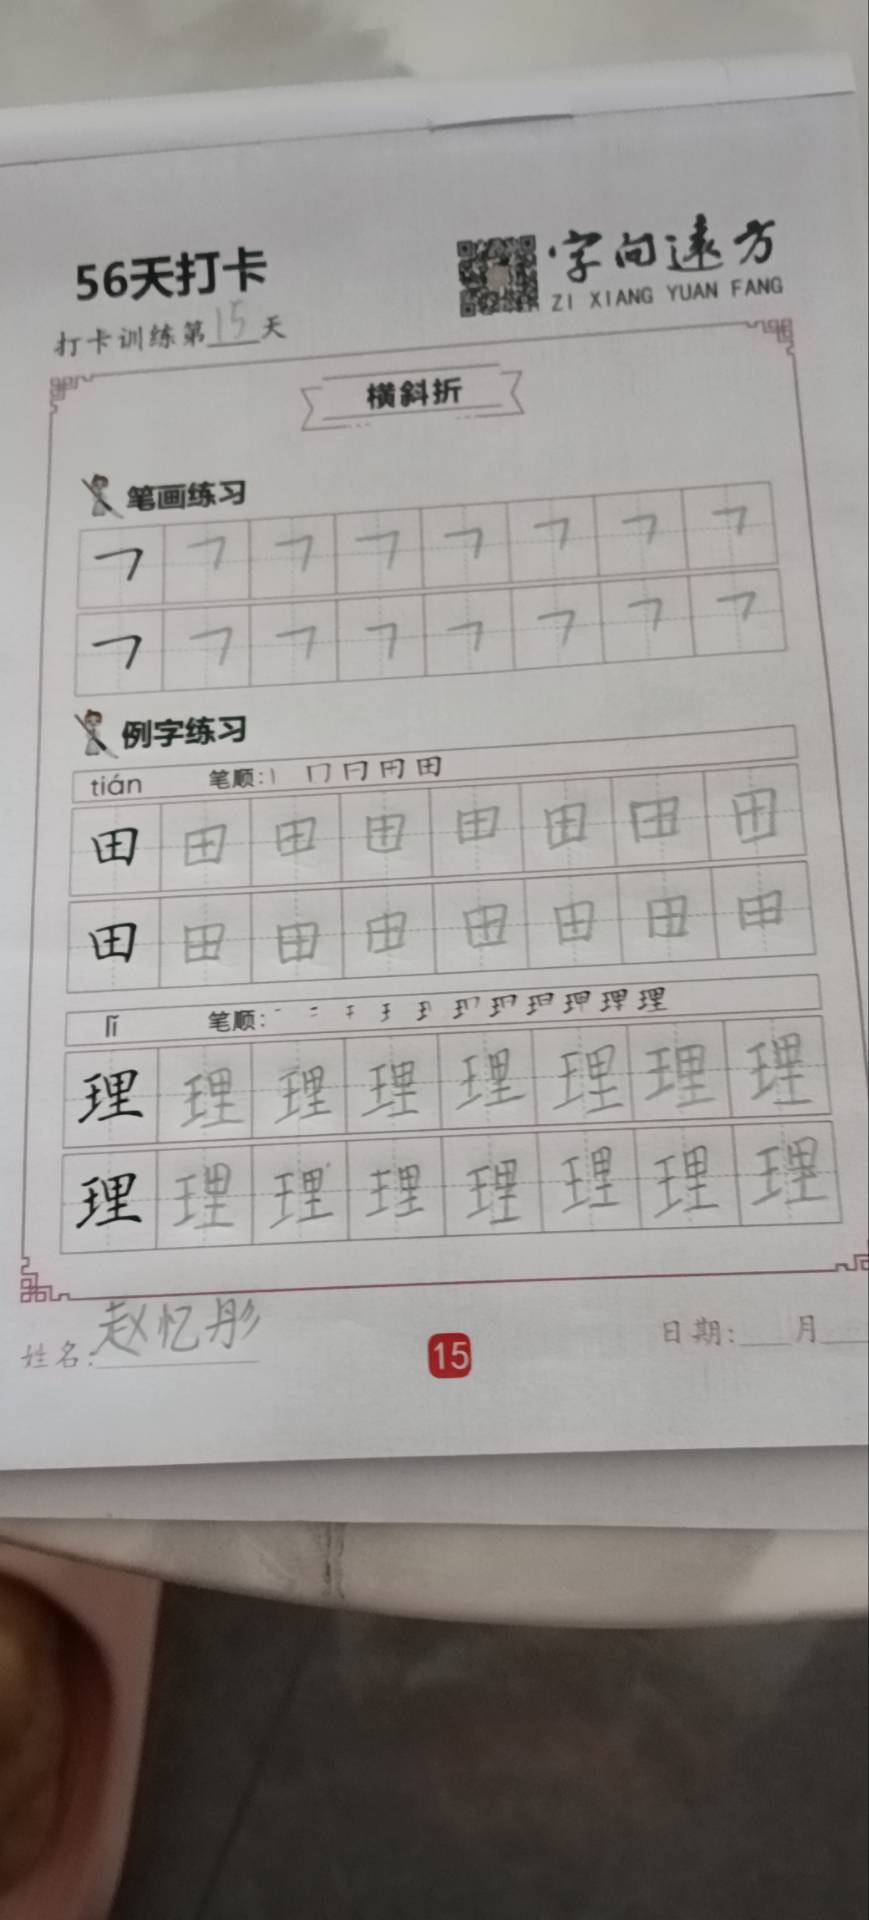 56天打卡
字向远方
ZI XIANG YUAN FANG
打卡训练第15天
横斜折
笔画练习
㇕ ㇕ ㇕ ㇕ ㇕ ㇕ ㇕ ㇕
㇕ ㇕ ㇕ ㇕ ㇕ ㇕ ㇕ ㇕
例字练习
tián 笔顺:丨 冂 冃 田
田 田 田 田 田 田 田 田
田 田 田 田 田 田 田 田
lǐ 笔顺: 理
理 理 理 理 理 理 理 理
理 理 理 理 理 理 理 理
姓名:赵忆彤
15
日期:___月___